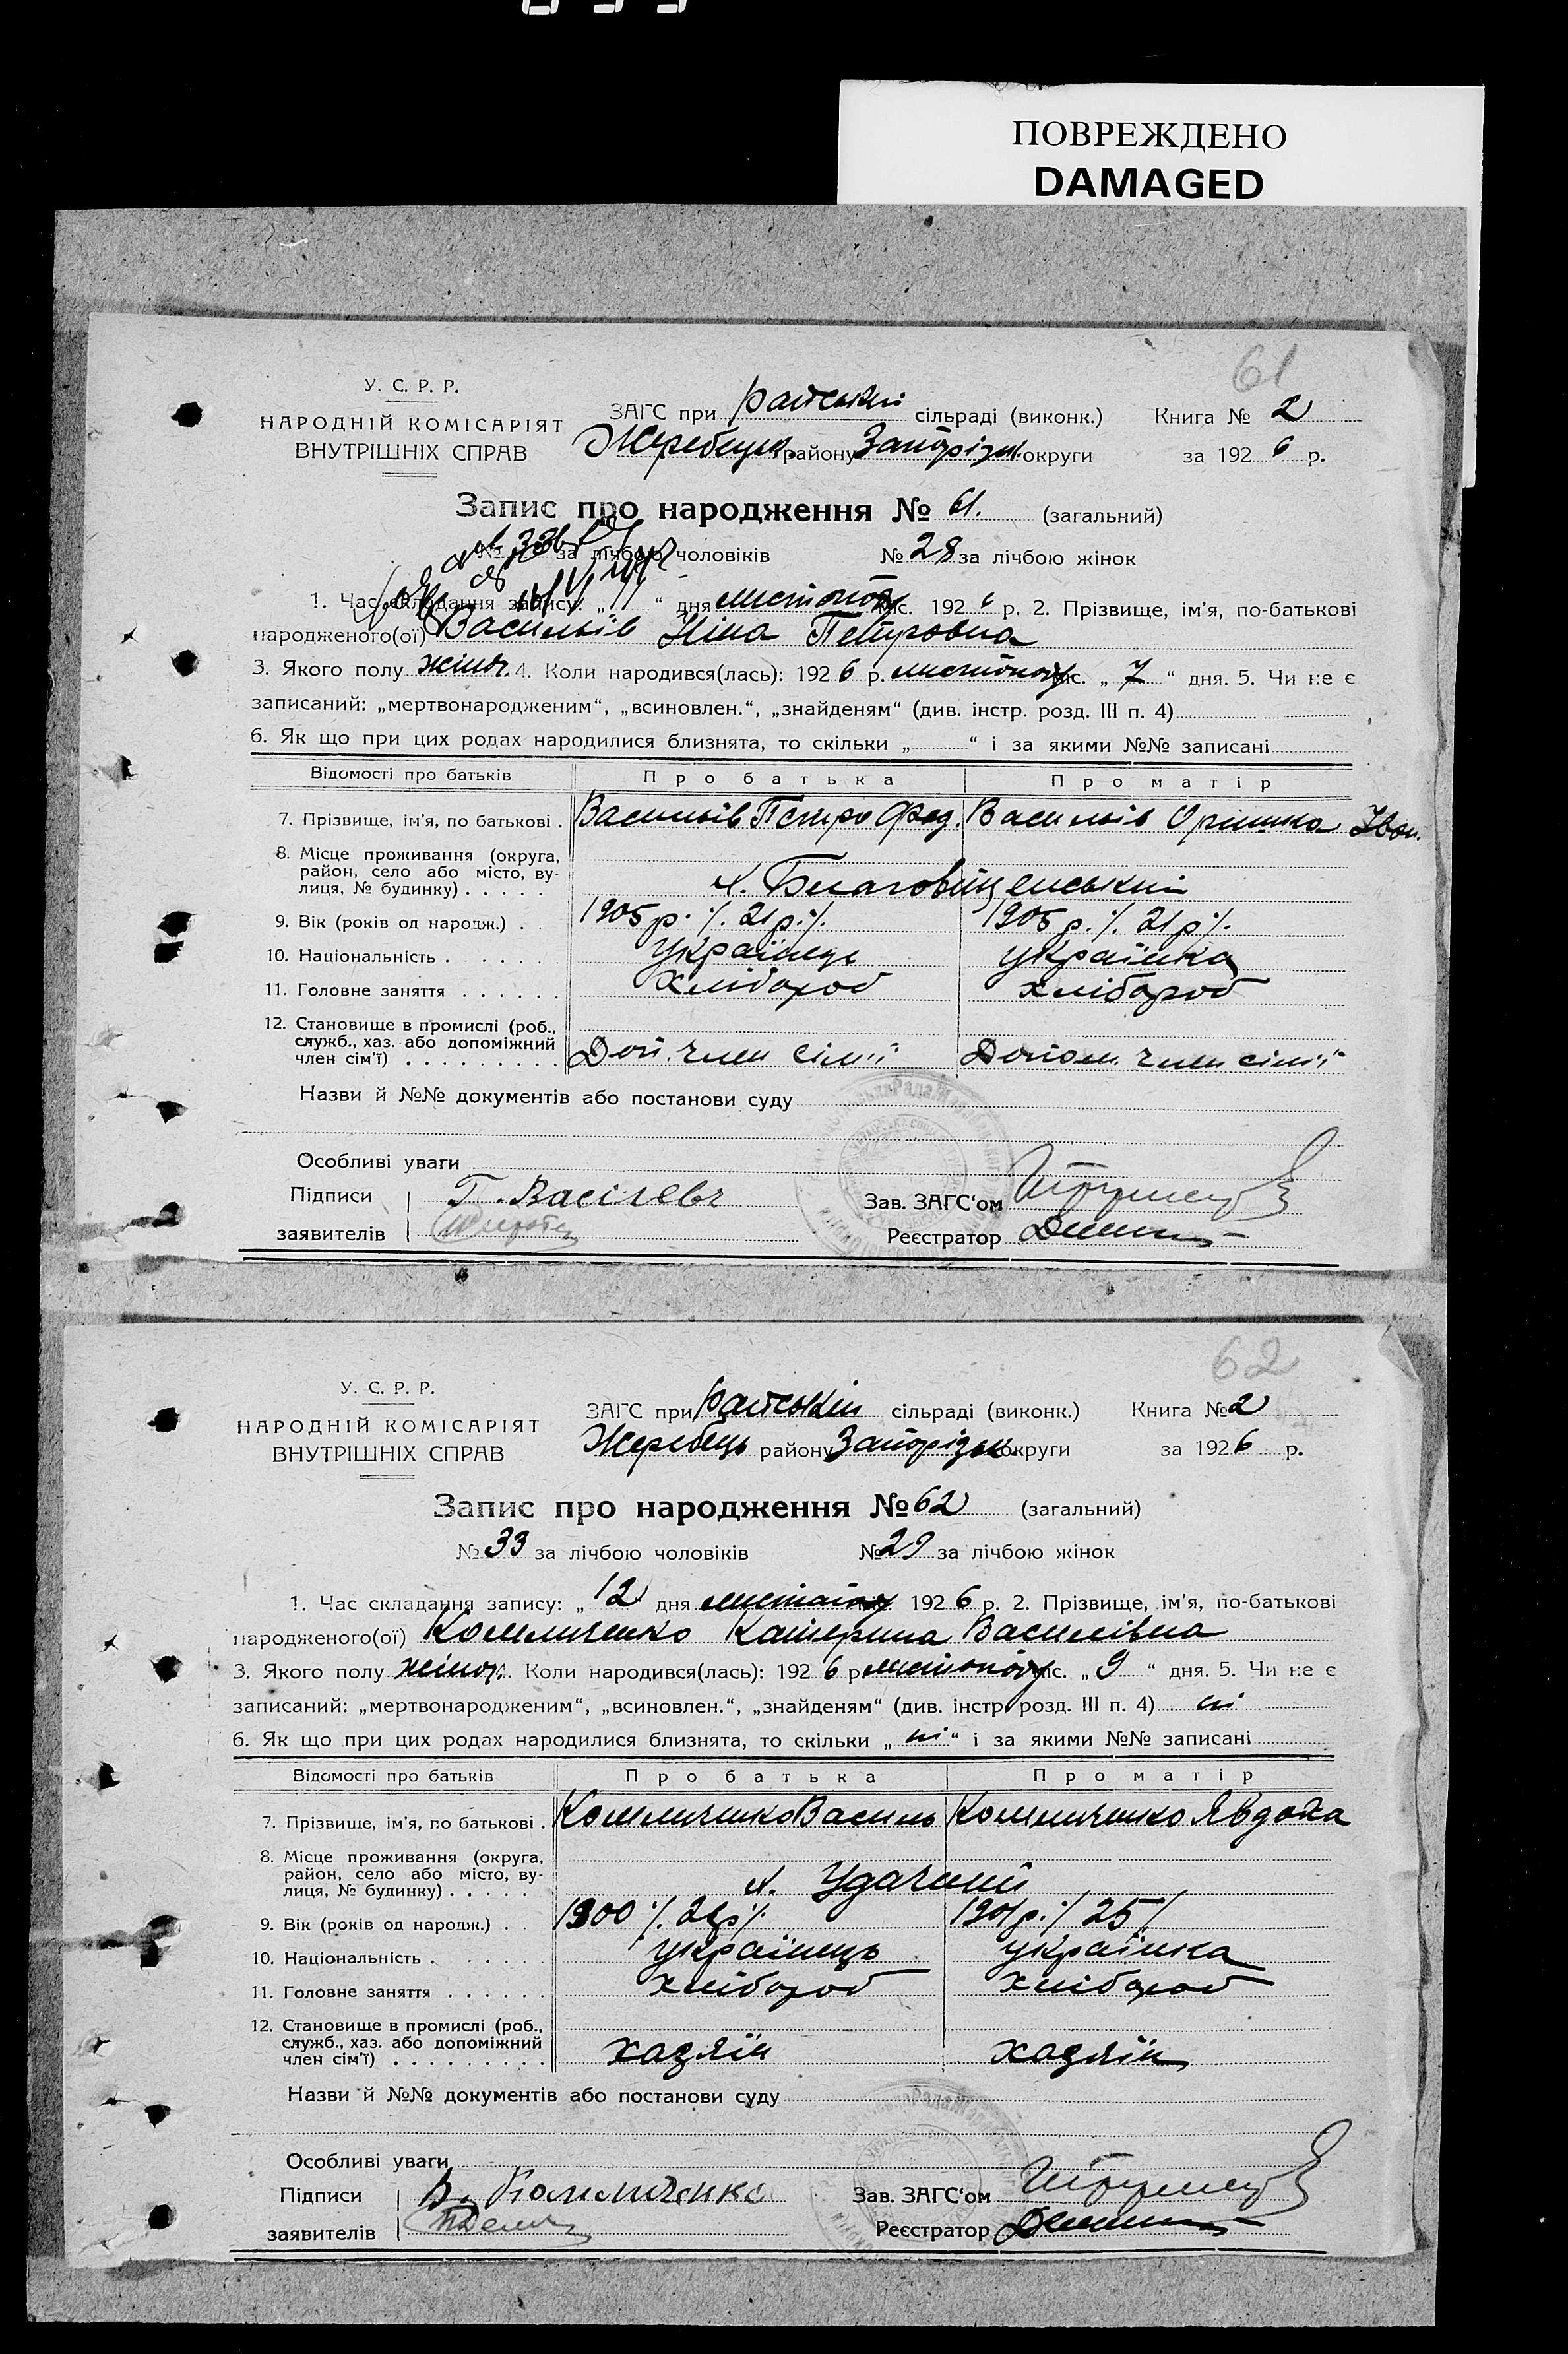 ПОВРЕЖДЕНО
DAMAGED
61
У. С. Р. Р.
НАРОДНІЙ КОМІСАРІЯТ
ВНУТРІШНІХ СПРАВ
ЗАГС при Райській сільраді (виконк.) Книга № 2
Жеребецьк. району Запорізьк. округи за 1926 р.
Запис про народження № 61. (загальний)
№ за лічбою чоловіків № 28 за лічбою жінок
1. Час складання запису: „11“ дня листопад міс. 1926 р. 2. Прізвище, ім'я, по-батькові
народженого(ої) Васильів Ніна Петровна
3. Якого полу жіноч. 4. Коли народився(лась): 1926 р. листопад міс. „7“ дня. 5. Чи не є
записаний: „мертвонародженим“, „всиновлен.“, „знайденям“ (див. інстр. розд. III п. 4)
6. Як що при цих родах народилися близнята, то скільки „ “ і за якими №№ записані
Відомості про батьків Про батька Про матір
7. Прізвище, ім'я, по батькові . Васильів Петро Фед. Васильів Оришка Іван.
8. Місце проживання (округа,
район, село або місто, ву-
лиця, № будинку) . . . . . х. Благовіщенський
9. Вік (років од народж.) . . 1905 р. /. 21 р. /. 1905 р. /. 21 р /.
10. Національність . . . . . . українець українка
11. Головне заняття . . . . . . хлібороб хлібороб
12. Становище в промислі (роб.,
служб., хаз. або допоміжний
член сім'ї) . . . . . . . . . Доп. член сімії Допом. член сімії
Назви й №№ документів або постанови суду
Особливі уваги
Підписи Васілевъ Зав. ЗАГС'ом
заявителів Реєстратор
62
У. С. Р. Р.
НАРОДНІЙ КОМІСАРІЯТ
ВНУТРІШНІХ СПРАВ
ЗАГС при Райській сільраді (виконк.) Книга № 2
Жеребець району Запорізьк. округи за 1926 р.
Запис про народження № 62 (загальний)
№ 33 за лічбою чоловіків № 29 за лічбою жінок
1. Час складання запису: „12 дня листопад міс. 1926 р. 2. Прізвище, ім'я, по-батькові
народженого(ої) Комличенко Катерина Василівна
3. Якого полу жіноч. 4. Коли народився(лась): 1926 р листопад міс. „9“ дня. 5. Чи не є
записаний: „мертвонародженим“, „всиновлен.“, „знайденям“ (див. інстр розд. III п. 4) ні
6. Як що при цих родах народилися близнята, то скільки „ні“ і за якими №№ записані
Відомості про батьків Про батька Про матір
7. Прізвище, ім'я, по батькові . Комличенко Василь Комличенко Явдоха
8. Місце проживання (округа,
район, село або місто, ву-
лиця, № будинку) . . . . . х. Удачний
9. Вік (років од народж.) . . 1900 /. 26 р /. 1901 р. / 25 /
10. Національність . . . . . . українець українка
11. Головне заняття . . . . . . хлібороб хлібороб
12. Становище в промислі (роб.,
служб., хаз. або допоміжний
член сім'ї) . . . . . . . . . хазяїн хазяїн
Назви й №№ документів або постанови суду
Особливі уваги
Підписи В. Комличенко Зав. ЗАГС'ом
заявителів Реєстратор